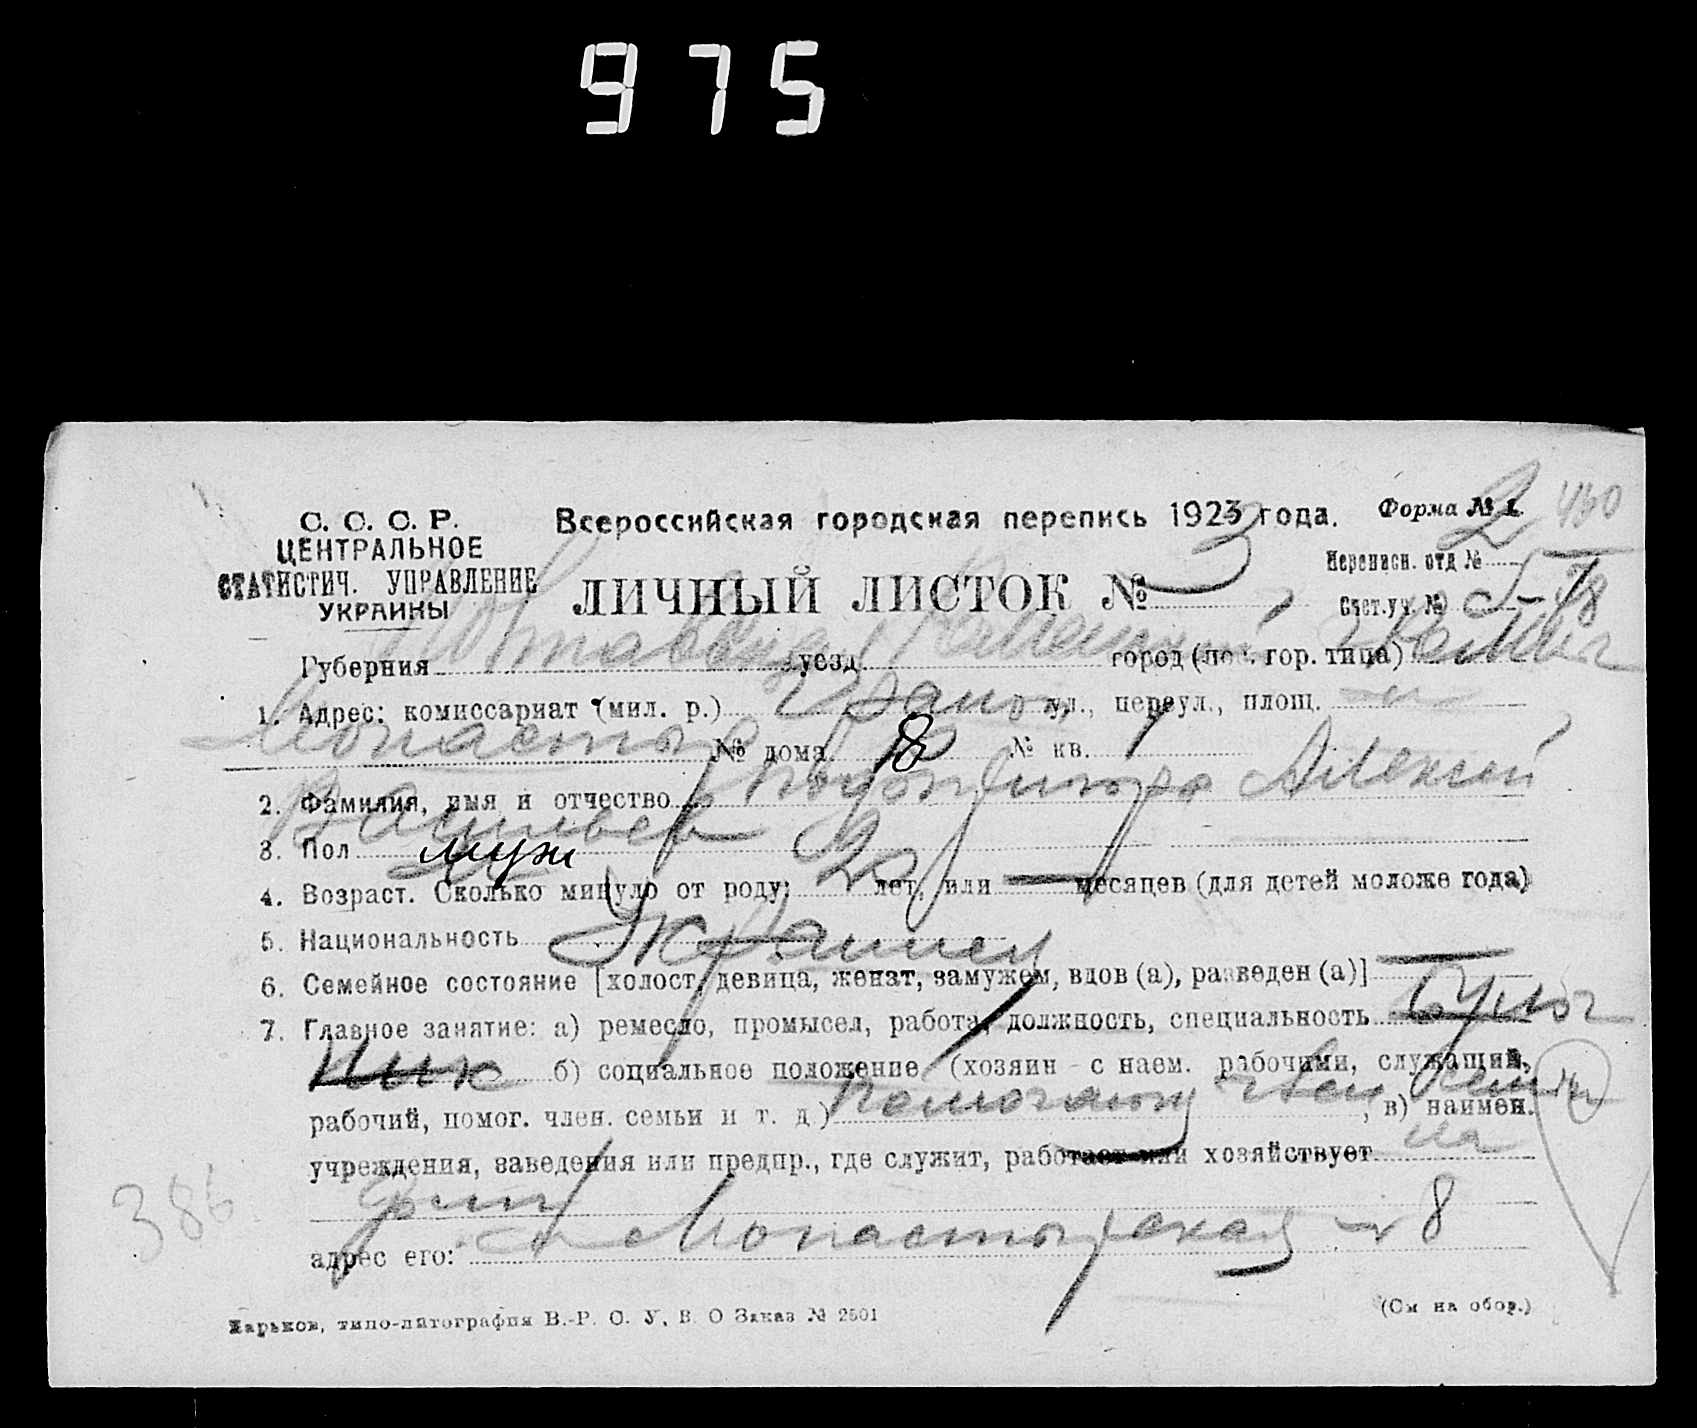 975
С. С. С. Р.
ЦЕНТРАЛЬНОЕ
СТАТИСТИЧ. УПРАВЛЕНИЕ
УКРАИНЫ
Всероссийская городская перепись 1923 года.
Форма № 1.
2 460
ЛИЧНЫЙ ЛИСТОК № 3
Переписн. отд №
Счет.уч. №
Губерния Полтавская уезд город (пос. гор. типа)
1. Адрес: комиссариат (мил. р.) ул., переул., площ.
Монастыр № дома 8 № кв. 1
2. Фамилия, имя и отчество Алексей
Васильев
3. Пол муж
4. Возраст. Сколько минуло от роду: 20 лет, или — месяцев (для детей моложе года)
5. Национальность Украинец
6. Семейное состояние [холост, девица, женат, замужем, вдов (а), разведен (а)] —
7. Главное занятие: а) ремесло, промысел, работа, должность, специальность
ник б) социальное положение (хозяин - с наем. рабочими, служащий,
рабочий, помог. член. семьи и т. д.) Помогающ член семьи, в) наимен.
учреждения, заведения или предпр., где служит, работает или хозяйствует на
адрес его: Монастырская 8
386
Харьков, типо-литография В.-Р. С. У. В. О Заказ № 2501
(См на обор.)